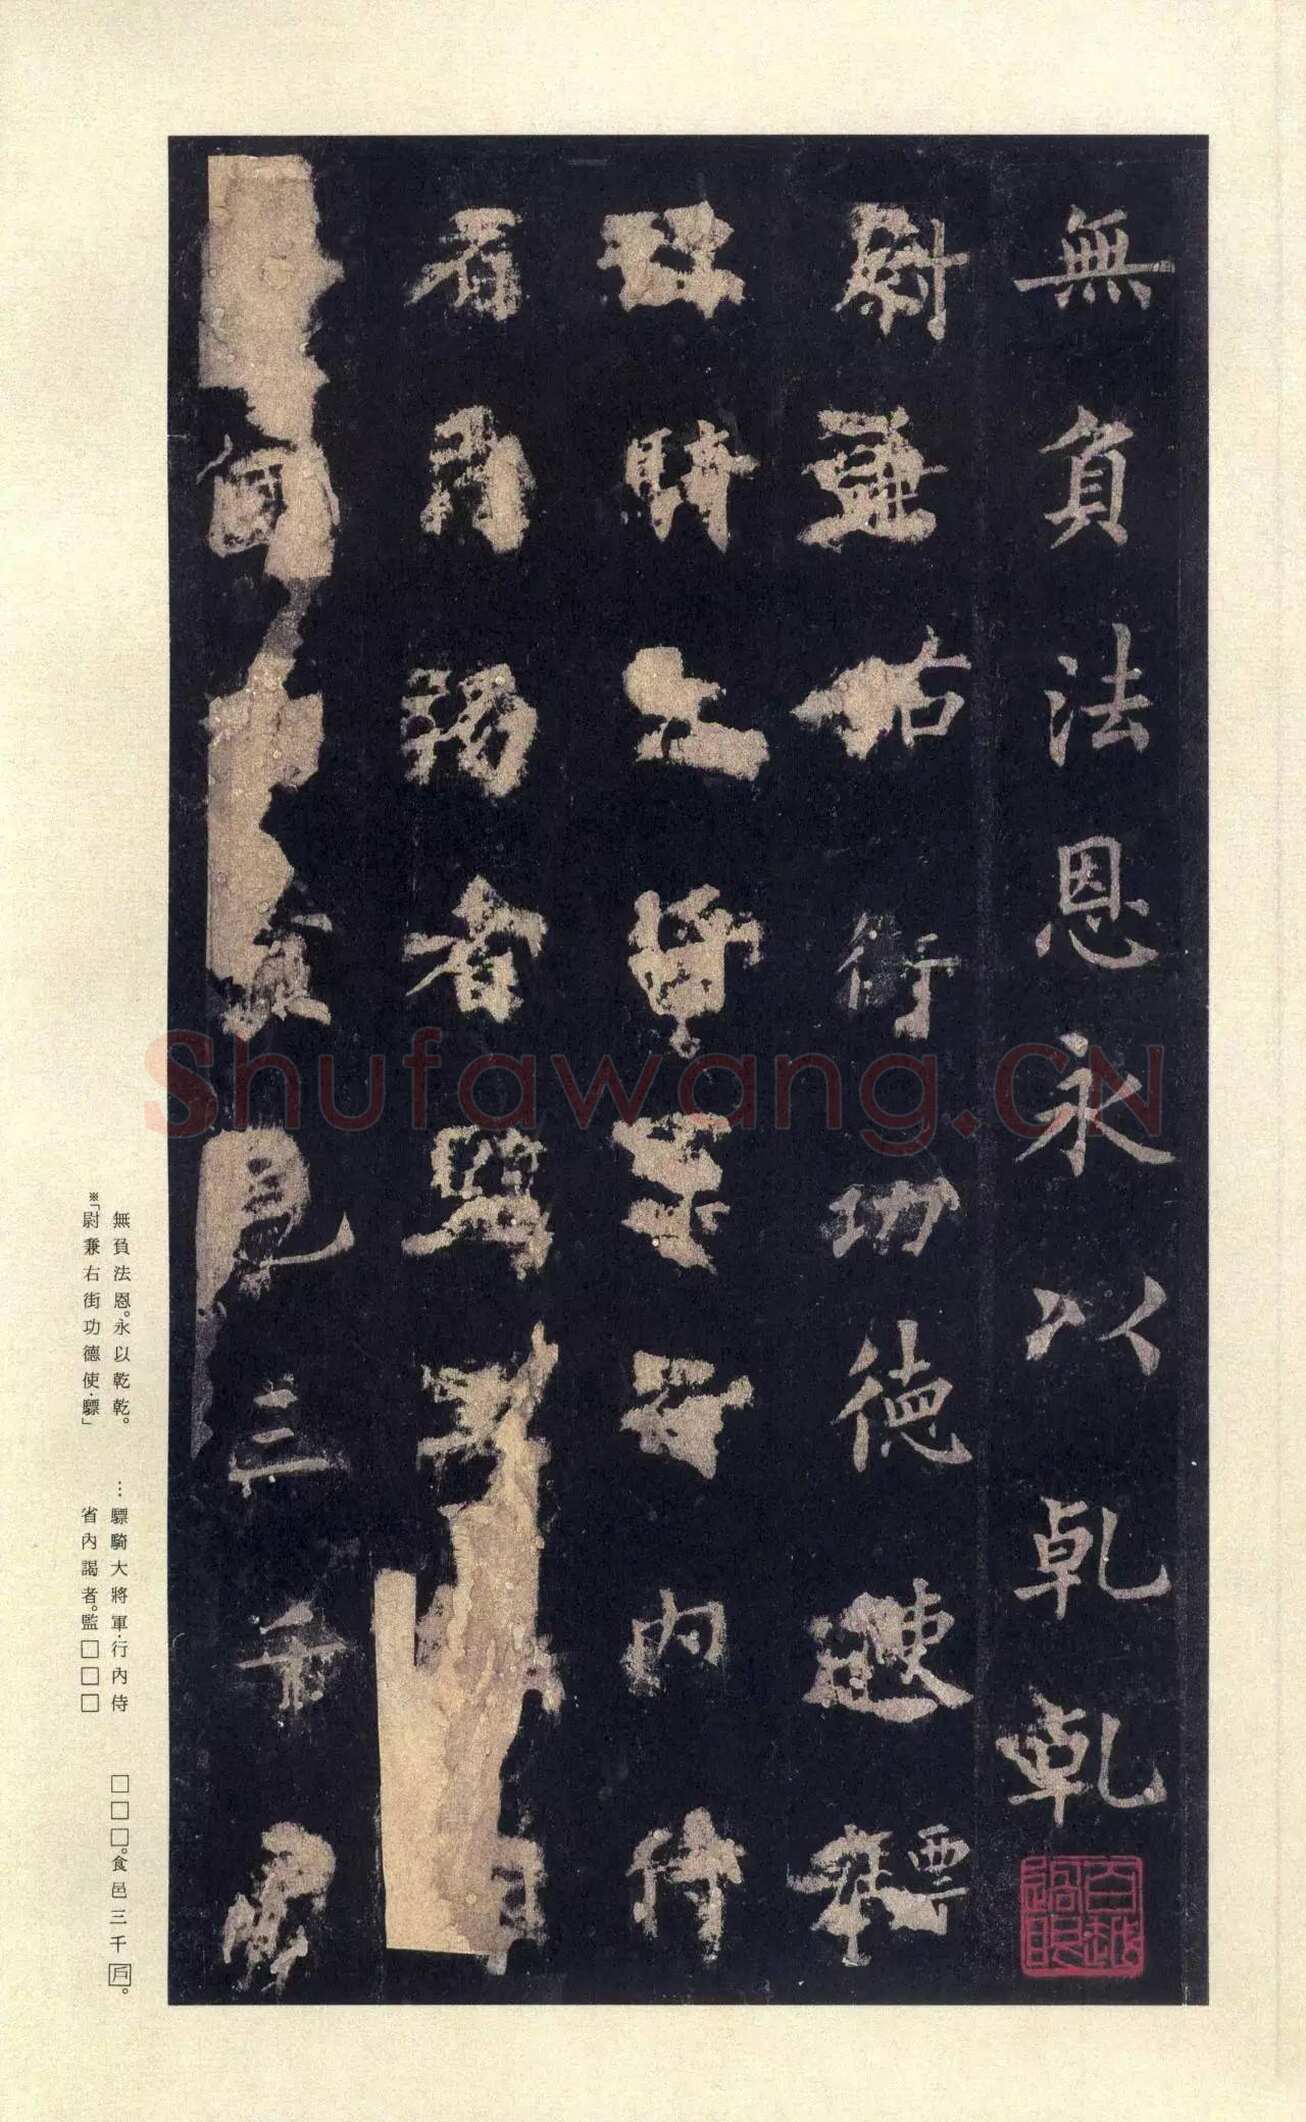 無負法恩永以乾乾
尉兼右街功德使驃
騎大將軍行內侍
省內謁者監
食邑三千
無負法恩。永以乾乾。
※「尉兼右街功德使·驃」
…驃騎大將軍·行內侍
省內謁者。監□□□
□□□。食邑三千戶。
Shufawang.CN